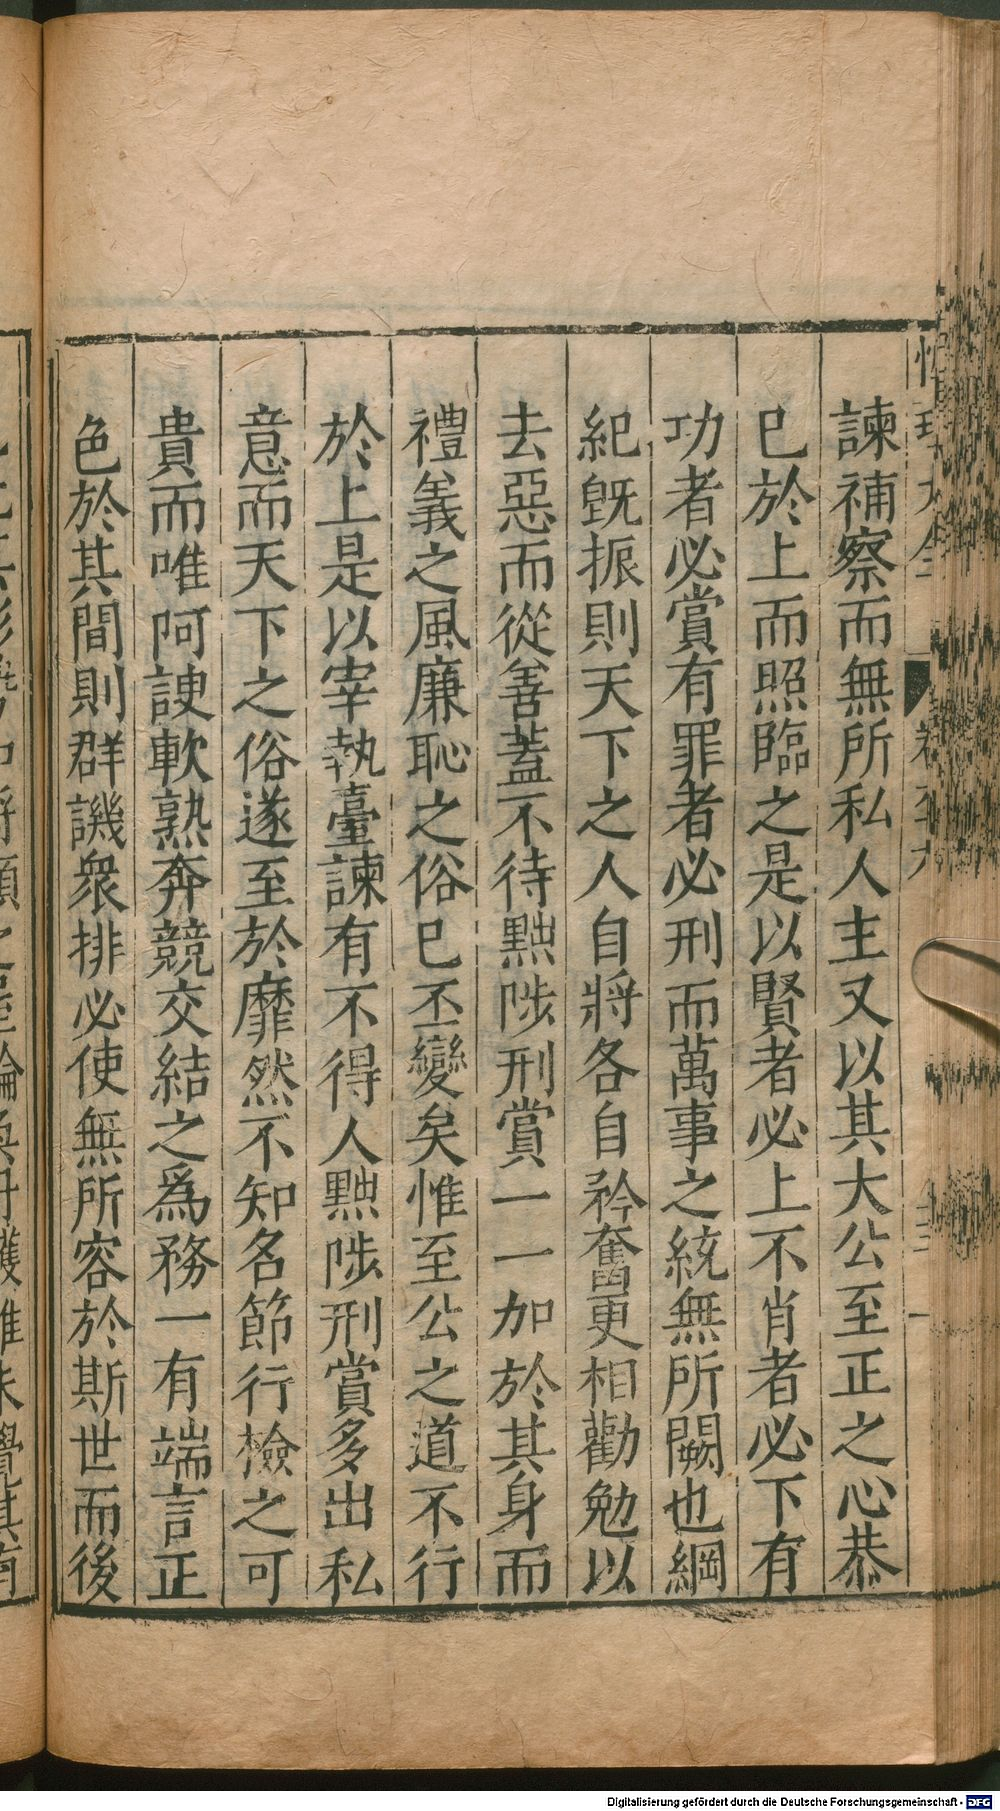 諫補察而無所私人主又以其大公至正之心恭
已於上而照臨之是以賢者必上不肖者必下有
功者必賞有罪者必刑而萬事之統無所闕也綱
紀旣振則天下之人自將各自矜奮更相勸勉以
去惡而從善蓋不待黜陟刑賞一一加於其身而
禮義之風廉恥之俗已丕變矣惟至公之道不行
於上是以宰執臺諫有不得人黜陟刑賞多出私
意而天下之俗遂至於靡然不知名節行檢之可
貴而唯阿諛軟熟奔競交結之爲務一有端言正
色於其間則群譏衆排必使無所容於斯世而後
Digitalisierung gefördert durch die Deutsche Forschungsgemeinschaft - DFG